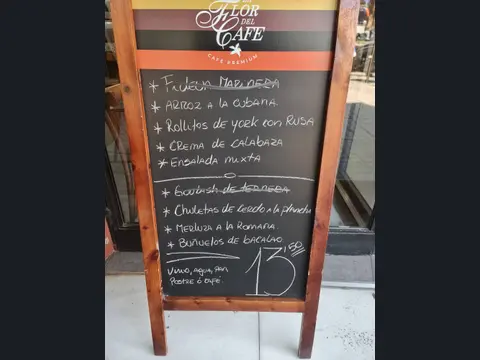 FLOR
DEL
CAFÉ
CAFÉ PREMIUM
* FIDEUA MARINERA
* ARROZ A LA CUBANA.
* Rollitos de york con RUSA
* CREMA DE CALABAZA
* ENSALADA MIXTA
* GOULASH DE TERNERA
* Chuletas de cerdo a la plancha
* MERLUZA A LA ROMANA.
* BUÑUELOS DE BACALAO.
VINO, AGUA, PAN
POSTRE ó CAFÉ.
13'50